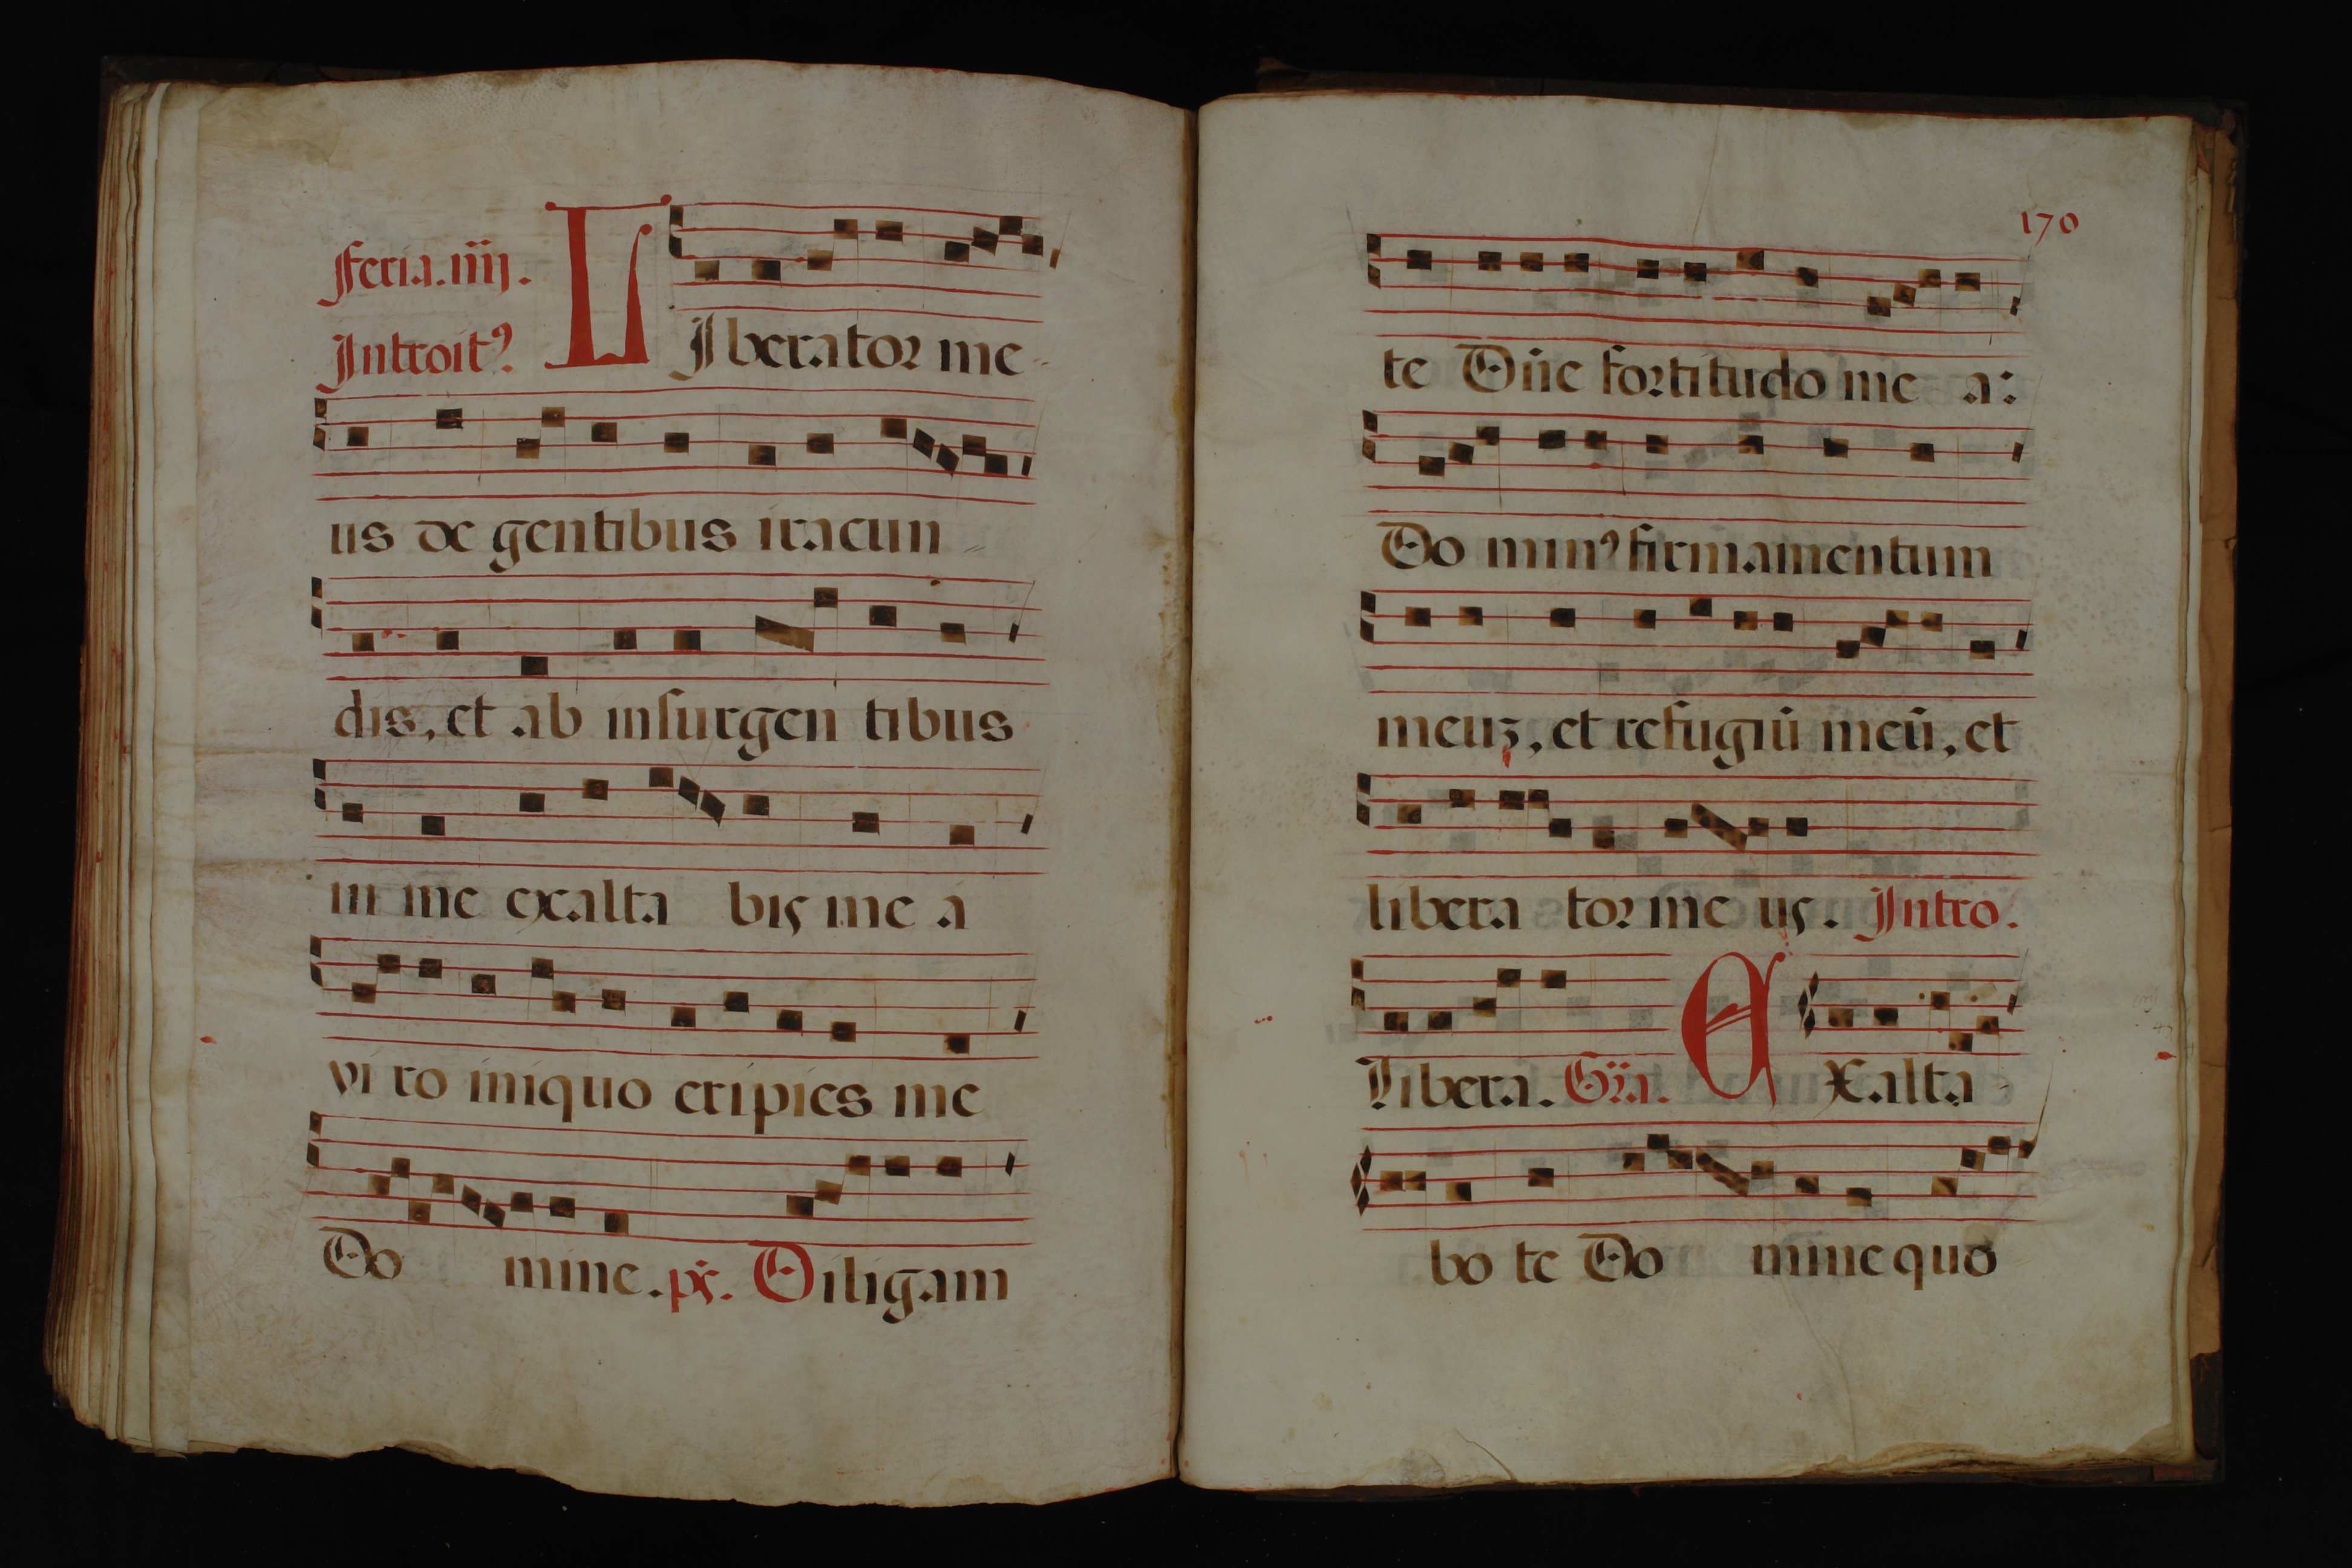 Feria.iiij.
Introit⁹. LIberator me-
us de gentibus iracun-
dis, et ab insurgen tibus
in me exalta bis me a
vi ro iniquo eripies me
Do mine. ps. Diligam
170
te Dñe fortitudo me a:
Do min⁹ firmamentum
meuʒ, et refugiũ meũ, et
libera tor me us. Intro.
Libera. Gra. EXalta-
bo te Do mine quo